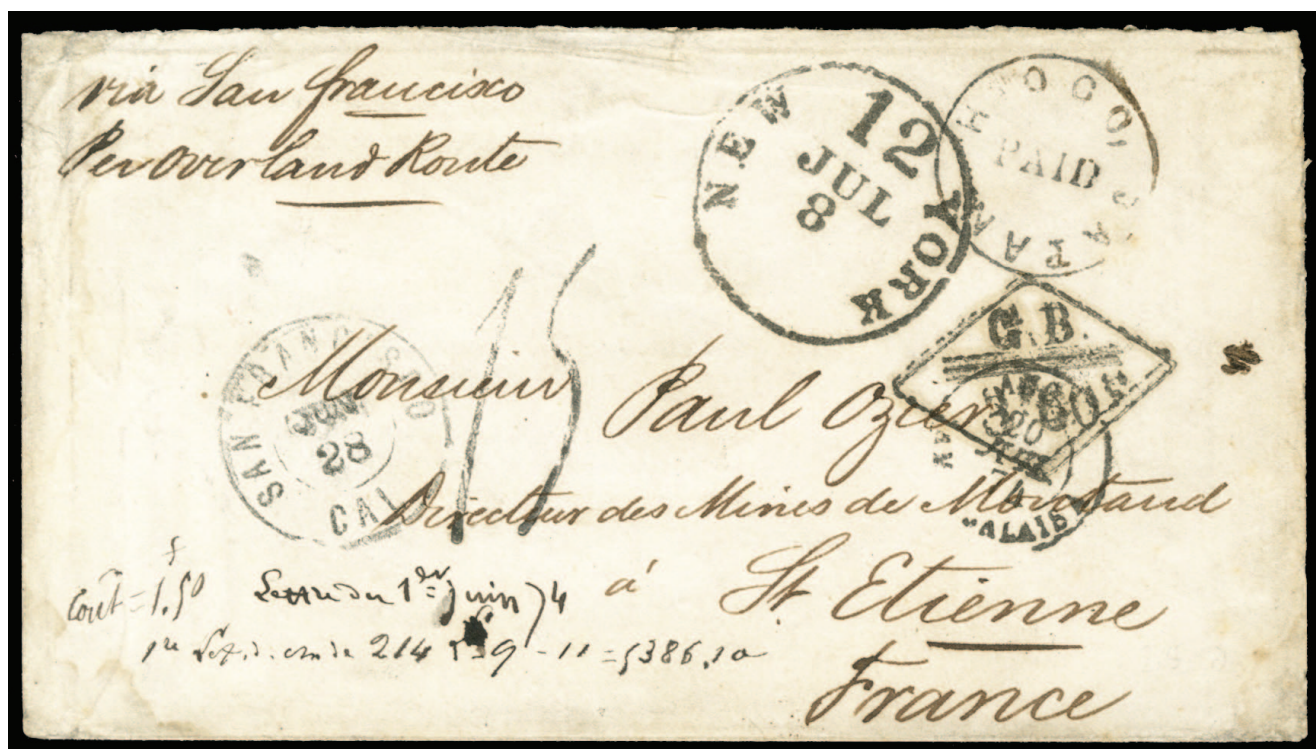 via San francisco
Per Overland Route
NEW YORK
12
JUL
8
HIOGO JAPAN
PAID
SAN FRANCISCO
JUN
28
CAL
15
G.B.
20
74
CALAIS
Monsieur Paul Ozier
Directeur des Mines de Montaud
à St. Etienne
France
coût = 1,50 Lettre du 1er juin 74
214